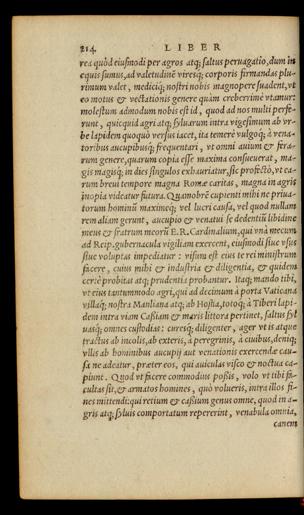 214. LIBER
rea quòd eiusmodi per agros atq; saltus peruagatio, dum in
equis sumus, ad valetudinẽ viresq; corporis firmandas plu-
rimum valet, mediciq; nostri nobis magnopere suadent, vt
eo motus & vectationis genere quàm creberrimè vtamur:
molestum admodum nobis est id, quod ad nos multi perfe-
runt, quicquid agri atq; syluarum intra vigesimum ab vr-
be lapidem quoquò versus iacet, ita temerè vulgoq; à vena-
toribus aucupibusq; frequentari, vt omni auium & fera-
rum genere, quarum copia esse maxima consueuerat, ma-
gis magisq; in dies singulos exhauriatur, sic profectò, vt ea-
rum breui tempore magna Romæ caritas, magna in agris
inopia videatur futura. Quamobrẽ cuperem mihi ne priua-
torum hominũ maximéq; vel lucri causa, vel quod nullam
rem aliam gerunt, aucupio & venatui se dedentiũ libidine
meus & fratrum meorũ E.R. Cardinalium, qui vnà mecum
ad Reip. gubernacula vigiliam exercent, eiusmodi siue vsus
siue voluptas impediatur: visum est eius te rei ministrum
facere, cuius mihi & industria & diligentia, & quidem
certè probitas atq; prudentia probantur. Itaq; mando tibi,
vt eius tantummodo agri, qui ad decimum à porta Vaticana
villãq; nostra Manliana atq; ab Hostia, totoq; à Tiberi lapi-
dem intra viam Cassiam & maris littora pertinet, saltus syl
uasq; omnes custodias: curesq; diligenter, ager vt is atque
tractus ab incolis, ab exteris, à peregrinis, à ciuibus, deniq;
vllis ab hominibus aucupij aut venationis exercendæ cau-
sa ne adeatur, præter eos, qui auiculas visco & noctua ca-
piunt. Quod vt facere commodius possis, volo vt tibi fa-
cultas sit, & armatos homines, quò volueris, intra illos fi-
nes mittendi: qui retium & cassium genus omne, quod in a-
gris atq; syluis comportatum repererint, venabula omnia,
canem